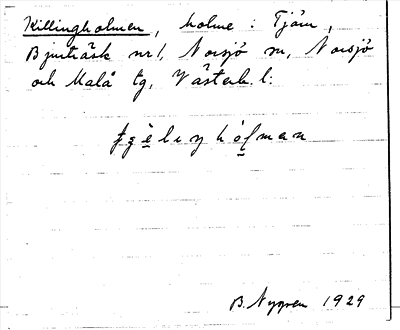 Killingholmen, holme: Tjärn,
Bjurträsk nr 1, Norsjö sn, Norsjö
och Malå tg, Västerb. l:
B. Nygren 1929